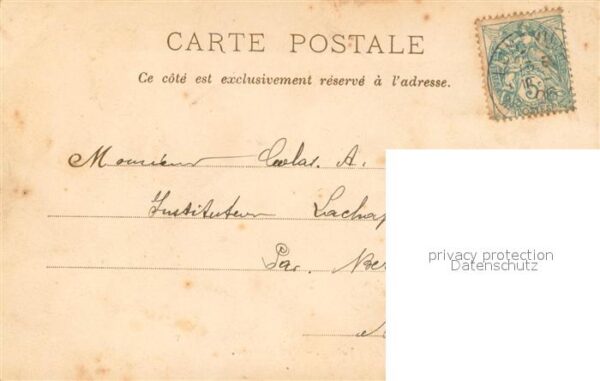 CARTE POSTALE
Ce côté est exclusivement réservé à l'adresse.
5
Monsieur A.
Instituteur Lachap
Par. Ber
privacy protection
Datenschutz